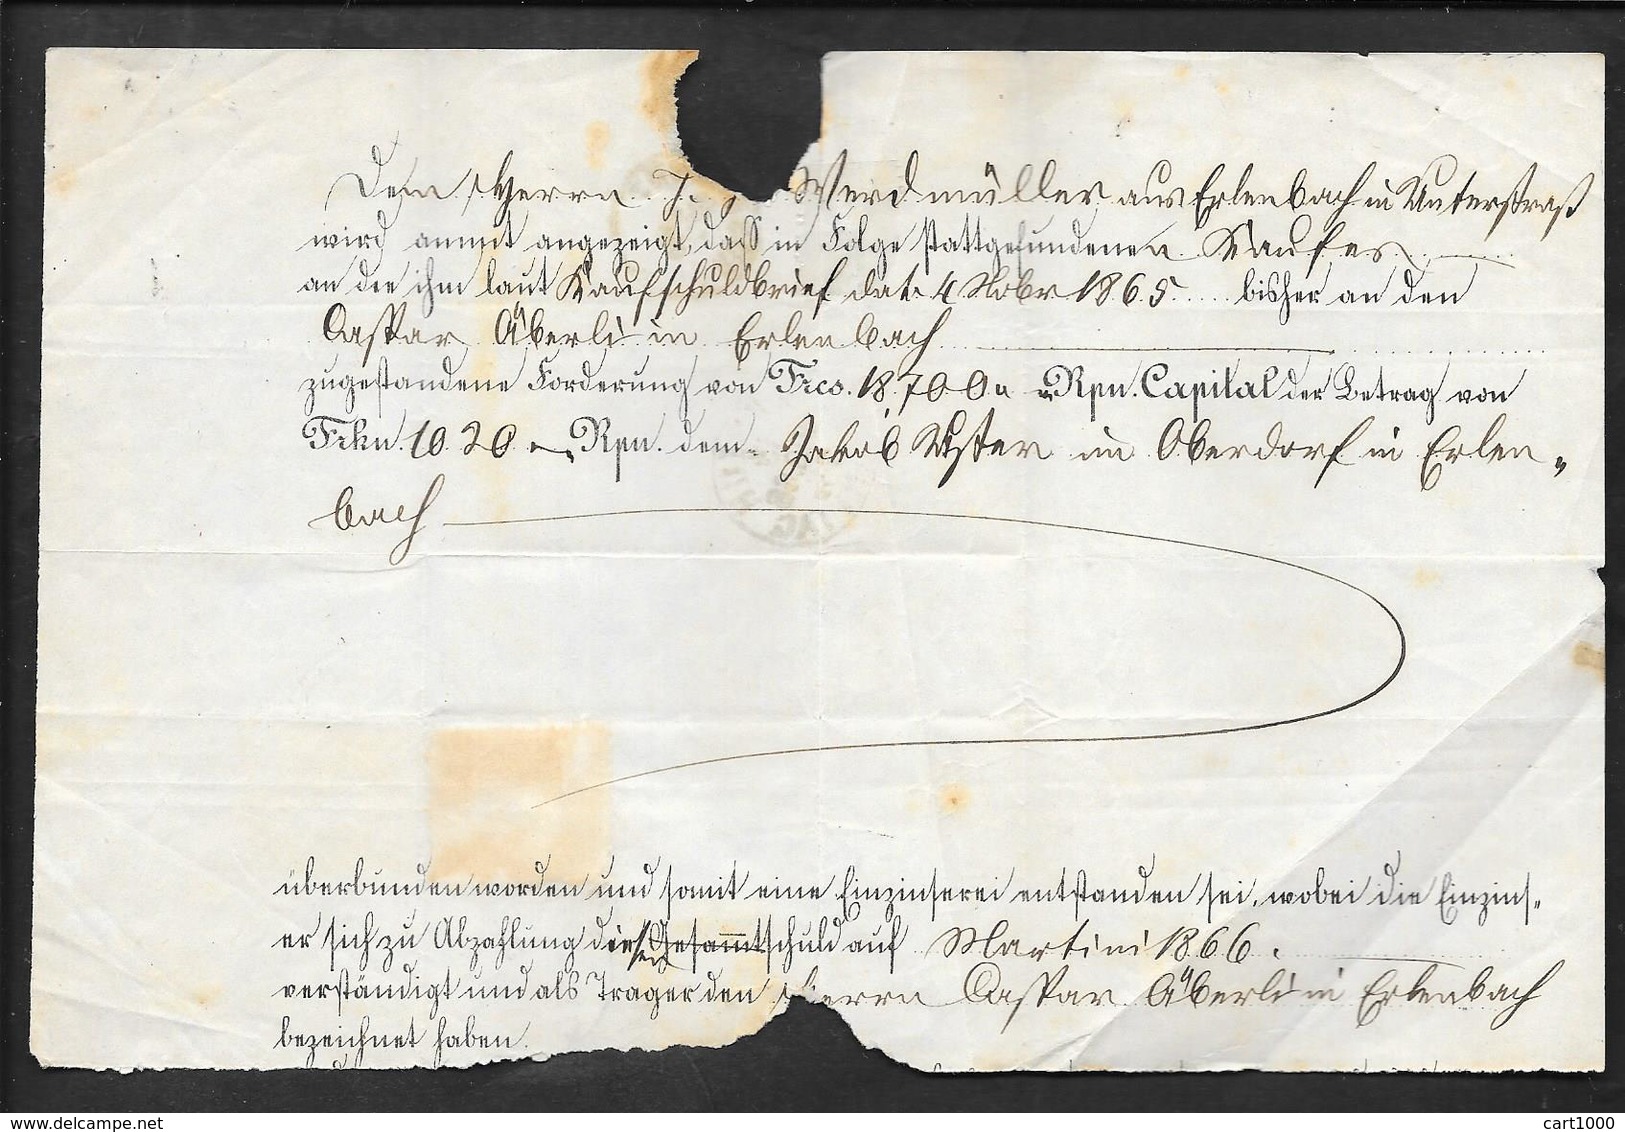 Dem Herrn J. Werdmüller aus Erlenbach in Unterstraß
wird anmit angezeigt, daß in Folge stattgefundenen Kaufes
an die ihm laut Kaufschuldbrief dat. 4 Novbr 1865 bisher an den
Caspar Äberli in Erlenbach
zugestandene Forderung von Frcs. 18700 Rpn. Capital der Betrag von
Frkn. 1020 Rpn. dem Jakob Uster im Oberdorf in Erlen„
bach
überbunden worden und somit eine Einzinserei entstanden sei, wobei die Einzins„
er sich zu Abzahlung dieser Gesammtschuld auf Martini 1866.
verständigt und als Trager den Herrn Caspar Äberli in Erlenbach
bezeichnet haben.
www.delcampe.net cart1000